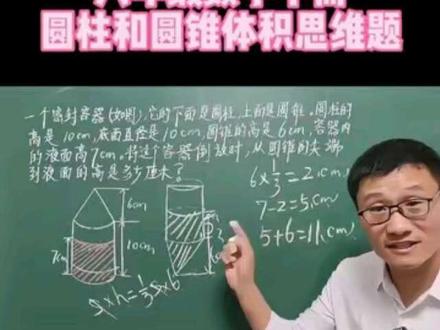 圆柱和圆锥体积思维题
一个密封容器(如图),它的下面是圆柱,上面是圆锥。圆柱的
高是10cm,底面直径是10cm,圆锥的高是6cm,容器内
的液面高7cm。将这个容器倒放时,从圆锥的尖端
到液面的高是多少厘米?
6×1/3=2(cm)
7-2=5(cm)
5+6=11(cm)
6cm
10cm
7cm
S×h=1/3S×6